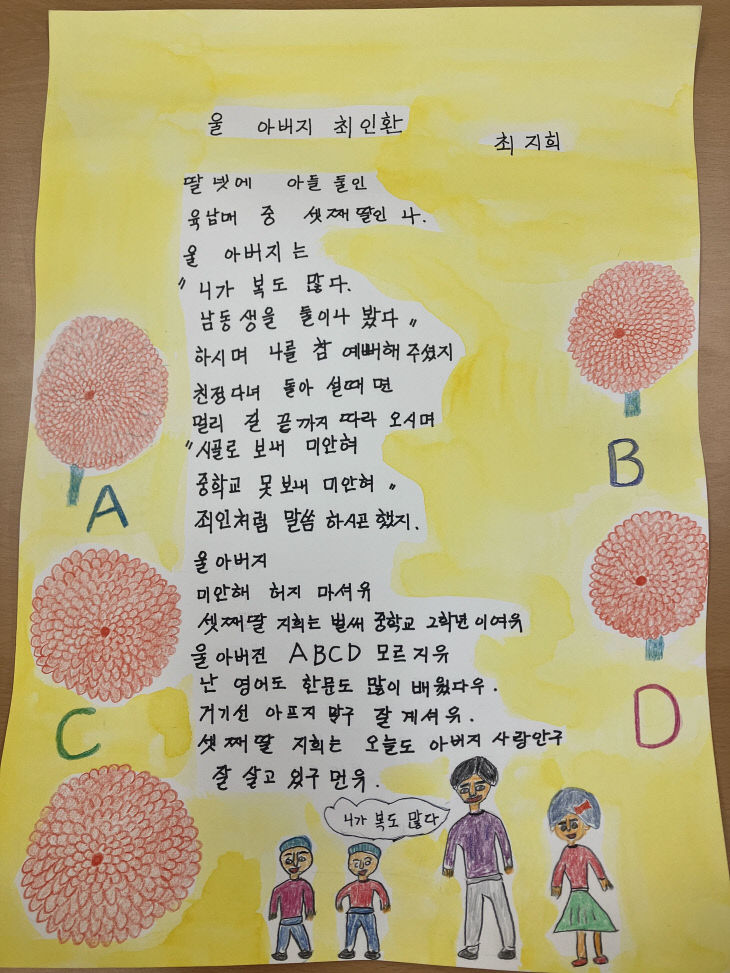 울 아버지 최인환
최지희
딸 넷에 아들 둘인
육남매 중 셋째 딸인 나.
울 아버지는
"니가 복도 많다.
남동생을 둘이나 봤다"
하시며 나를 참 예뻐해 주셨지
친정다녀 돌아 설때 면
멀리 길 끝까지 따라 오시며
"시골로 보내 미안혀
중학교 못 보내 미안혀"
죄인처럼 말씀 하시곤 했지.
울아버지
미안해 허지 마셔유
셋째딸 지희는 벌써 중학교 2학년 이여유
울아버진 ABCD 모르지유
난 영어도 한문도 많이 배웠다우.
거기선 아프지 말구 잘 계셔유.
셋째딸 지희는 오늘도 아버지 사랑안구
잘 살고 있구 먼유.
니가 복도 많다
A
B
C
D